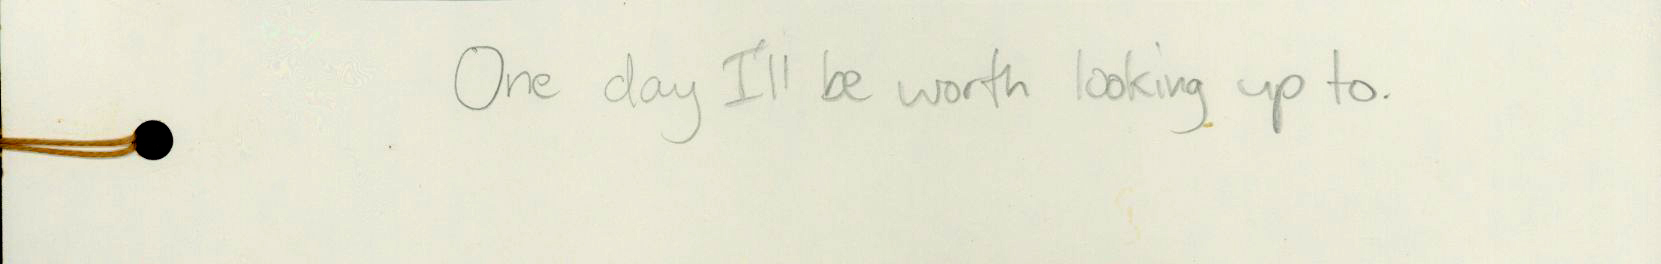 One day I'll be worth looking up to.